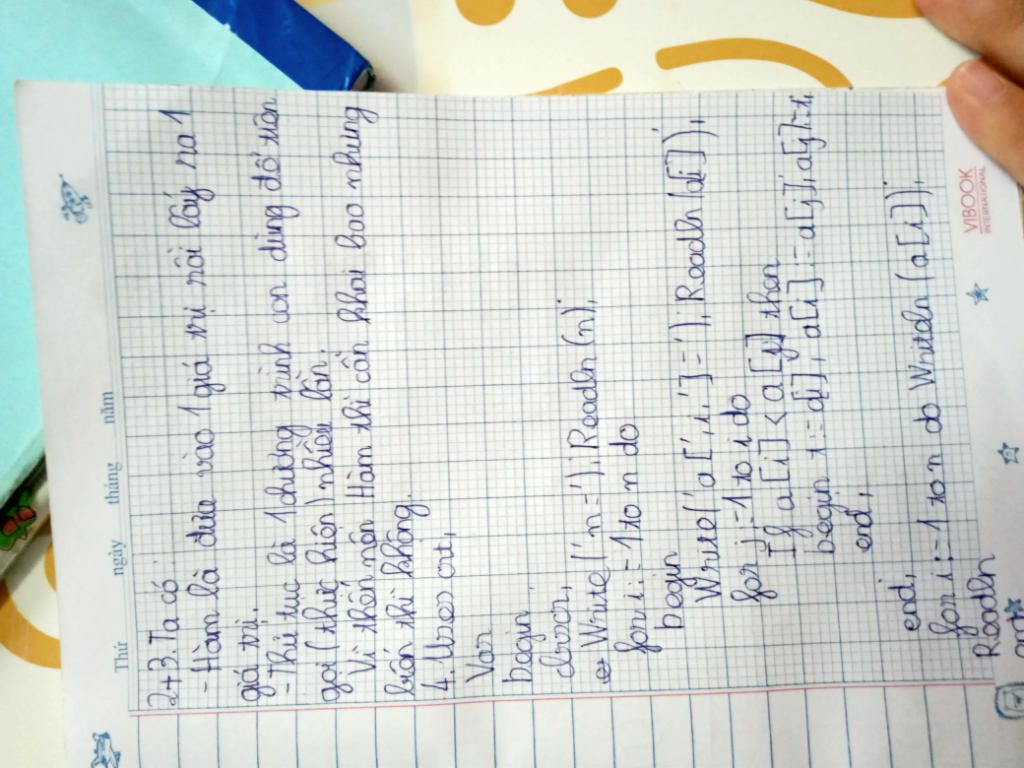 Thứ ngày tháng năm
2+3. Ta có
- Hàm là đưa vào 1 giá trị rồi lấy ra 1
giá trị.
- Thủ tục là 1 chương trình con dùng để
gọi (thực hiện) nhiều lần.
Vì thế nên Hàm thì cần khai bao nhưng
biến thì không.
4. Uses crt;
Var
begin
clrscr;
Write('n='); Readln(n);
for i:=1 to n do
begin
Write('a[',i,']='); Readln(a[i]);
for j:=1 to i do
If a[i] < a[j] then
begin x:=a[i]; a[i]:=a[j]; a[j]:=x;
end;
end;
for i:=1 to n do Writeln(a[i]);
Readln
VIBOOK
INTERNATIONAL